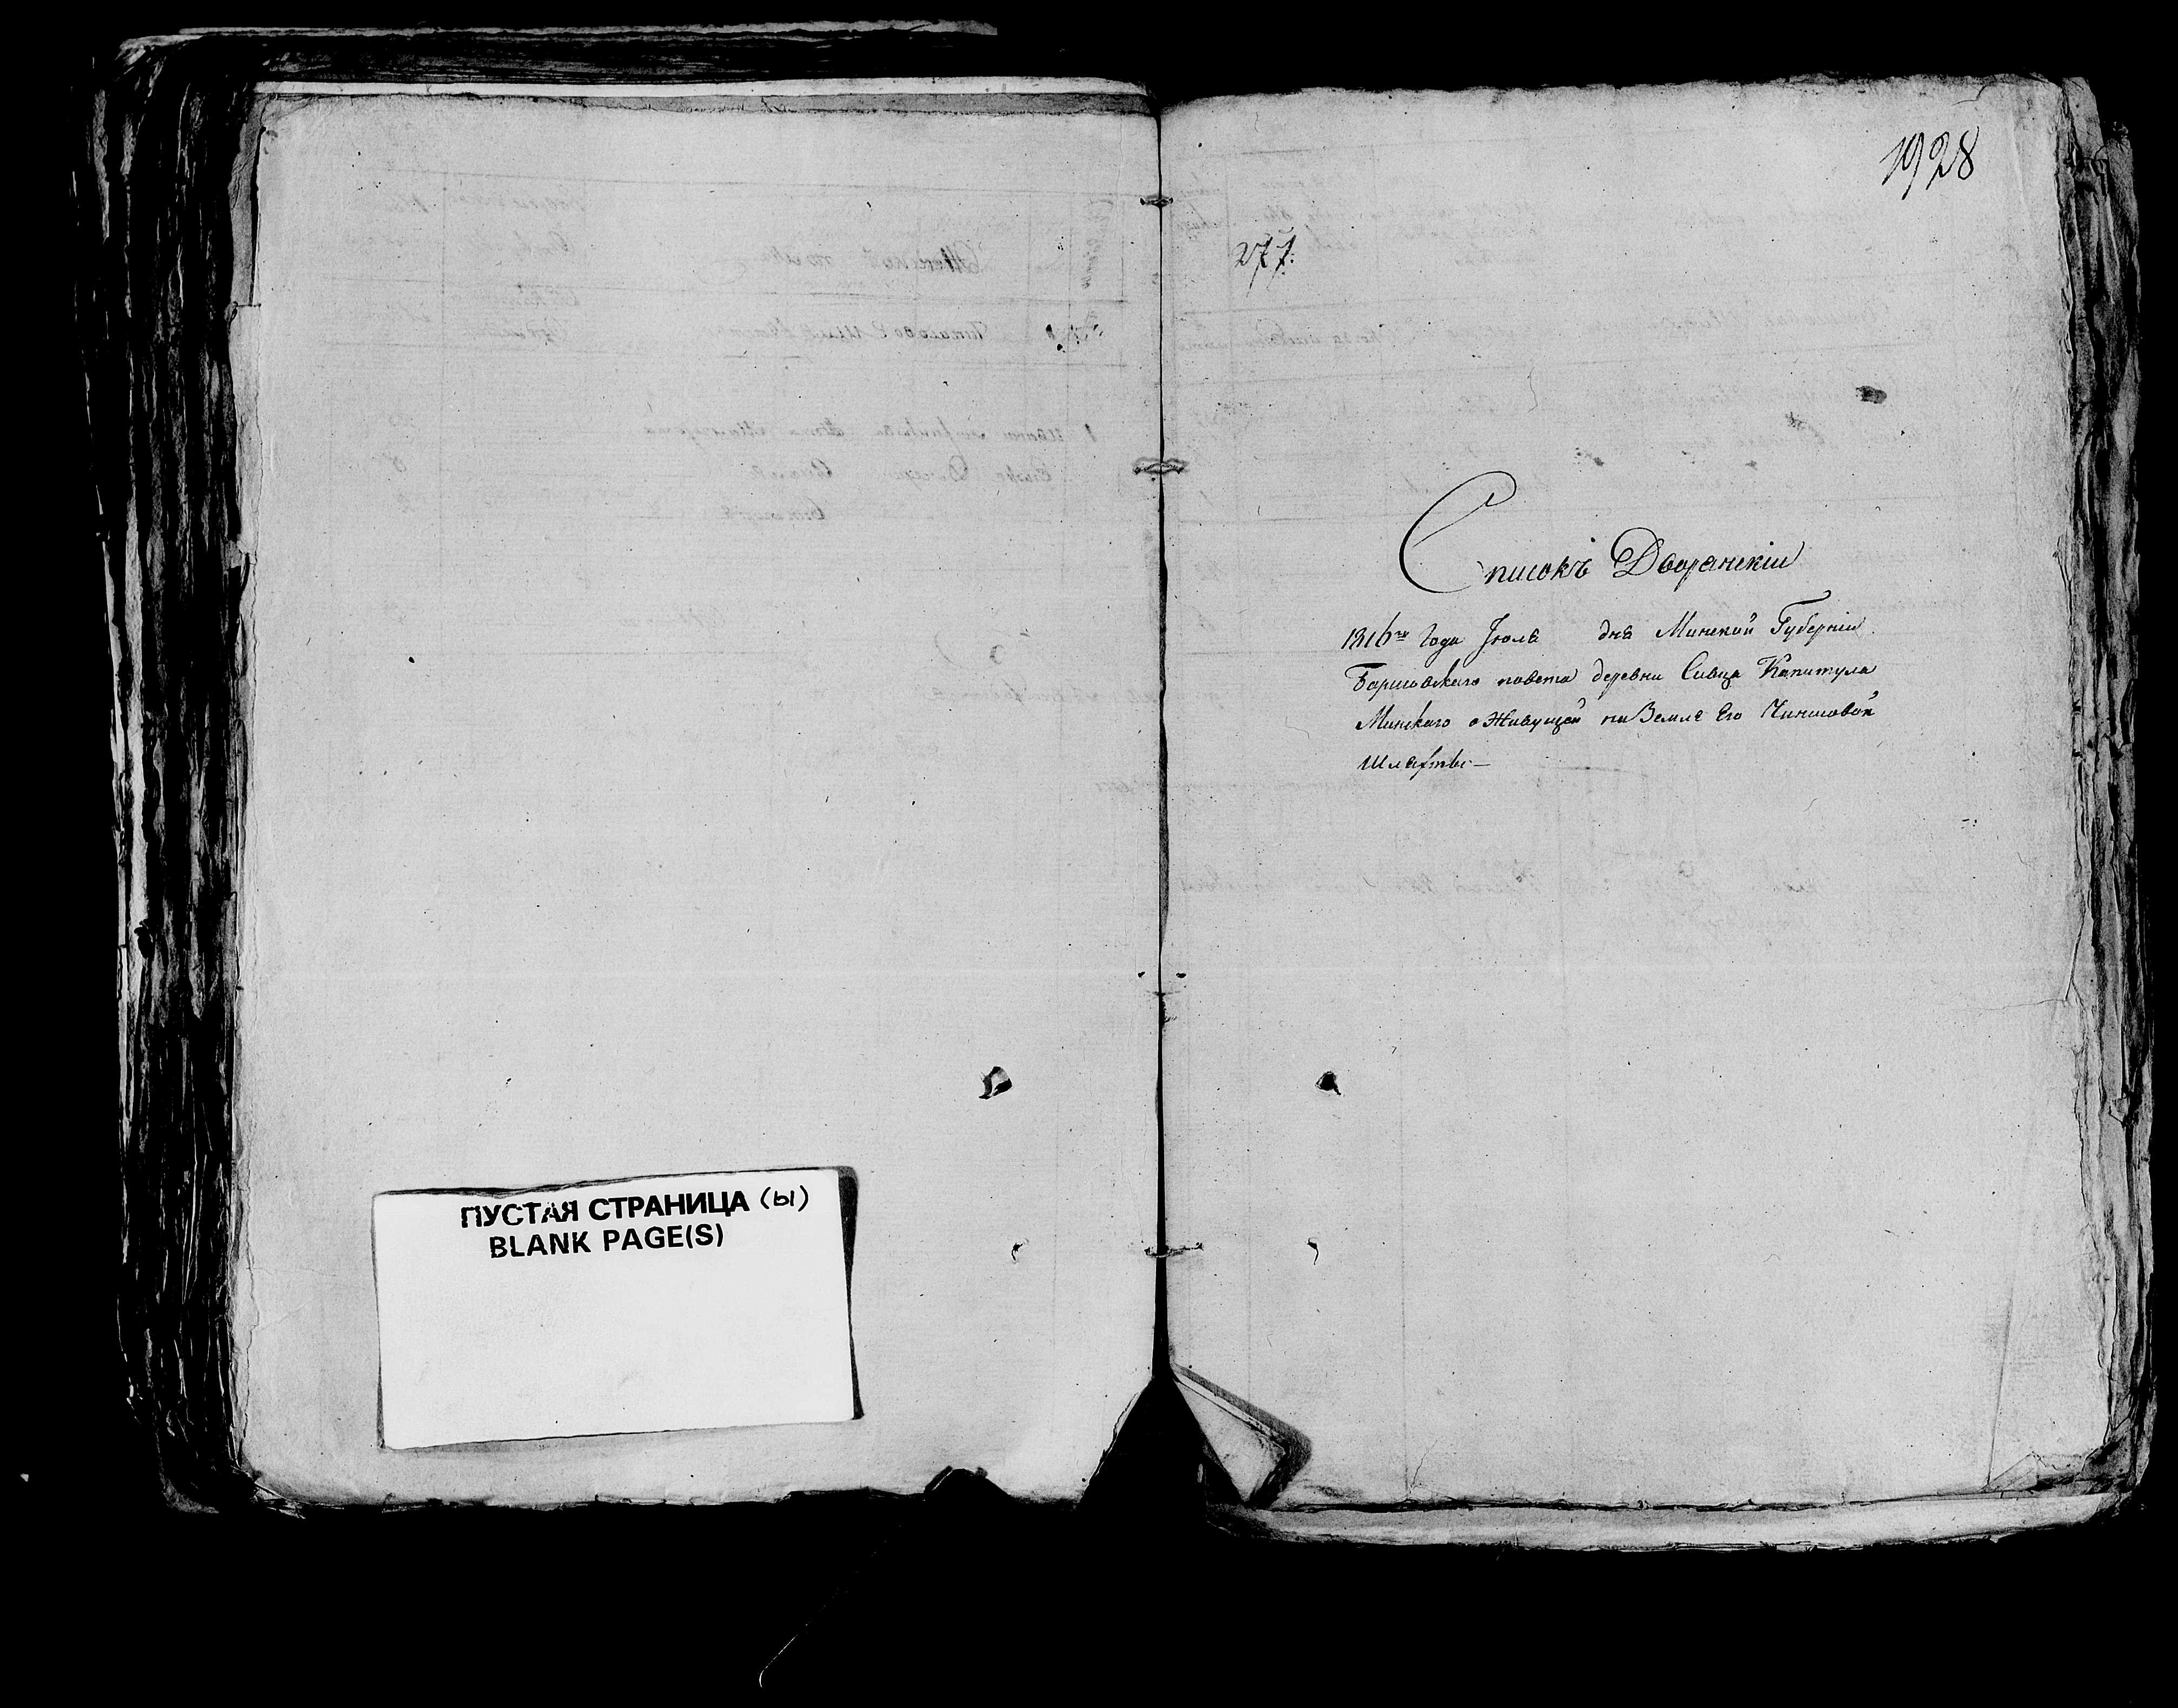 1928
277.
Списокъ Дворянскiи
1816го Года Іюля дня Минской Губернiи
Борисовскаго повета деревни Сивца Капитула
Минскаго о Живущей на Земле Его Чиншовой
Шляхты—
ПУСТАЯ СТРАНИЦА (Ы)
BLANK PAGE(S)